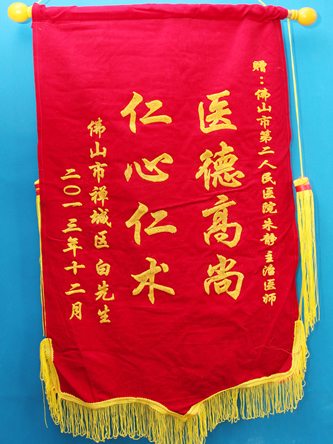 赠：佛山市第二人民医院朱静主治医师
医德高尚
仁心仁术
佛山市禅城区白先生
二〇一三年十二月